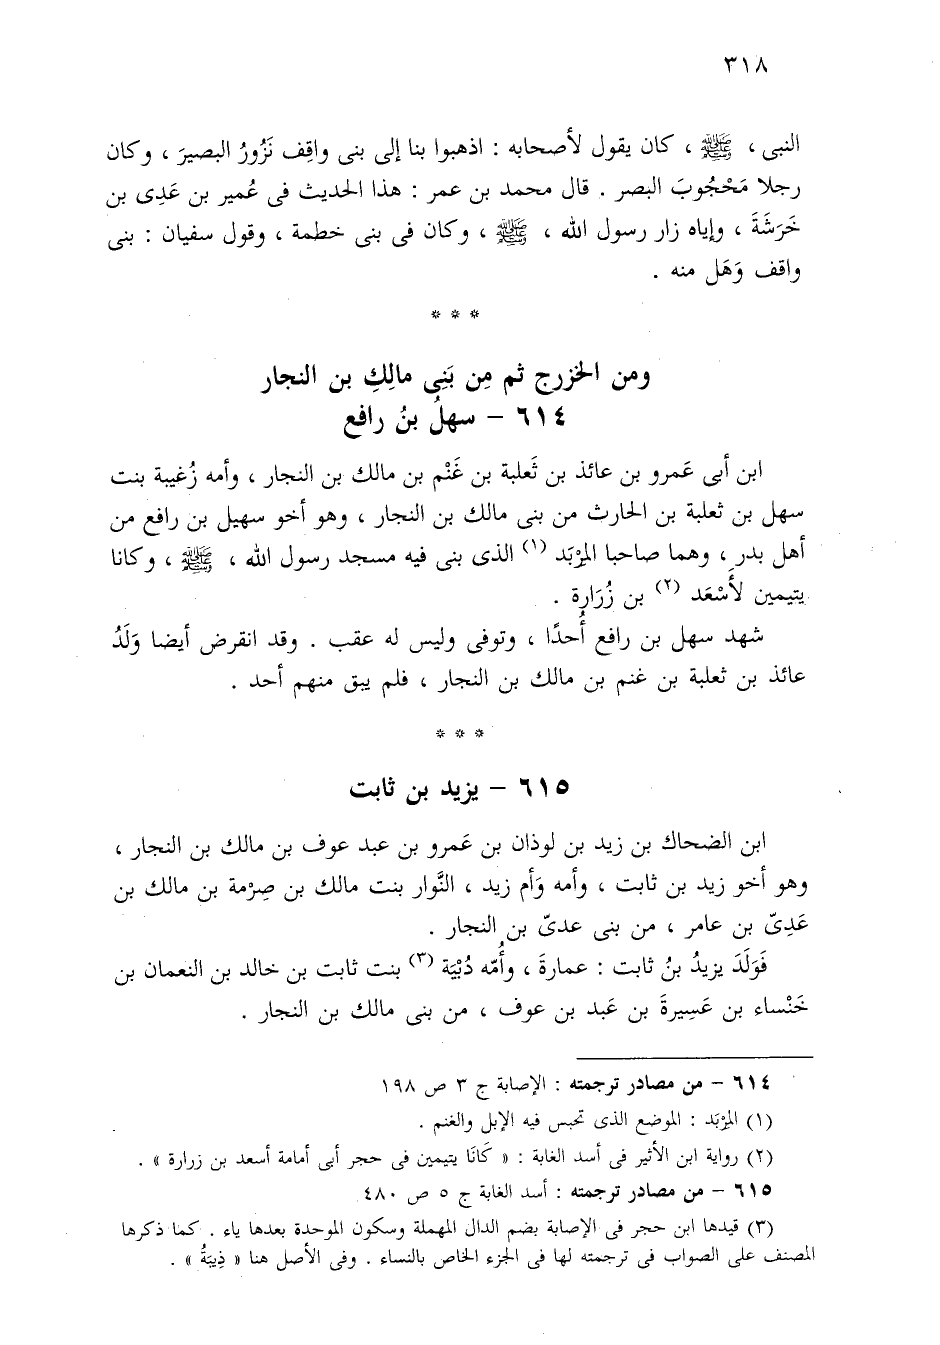 ٣١٨
النبى ، ﷺ ، كان يقول لأصحابه : اذهبوا بنا إلى بنى واقِف نَزُورُ البصيرَ ، وكان
رجلا مَحْجُوبَ البصر . قال محمد بن عمر : هذا الحديث فى عُمير بن عَدِى بن
خَرَشَةَ ، وإياه زار رسول الله ، ﷺ ، وكان فى بنى خطمة ، وقول سفيان : بنى
واقف وَهَل منه .
* * *
ومن الخزرج ثم مِن بَنِى مالِكِ بن النجار
٦١٤ – سهلُ بنُ رافع
ابن أبى عَمرو بن عائذ بن ثَعلبة بن غَنْم بن مالك بن النجار ، وأمه زُغيبة بنت
سهل بن ثعلبة بن الحارث من بنى مالك بن النجار ، وهو أخو سهيل بن رافع من
أهل بدرٍ ، وهما صاحبا المِرْبَد (١) الذى بنى فيه مسجد رسول الله ، ﷺ ، وكانا
يتيمين لأَسْعَد (٢) بن زُرَارة .
شهد سهل بن رافع أُحدًا ، وتوفى وليس له عقب . وقد انقرض أيضا وَلَدُ
عائذ بن ثعلبة بن غنم بن مالك بن النجار ، فلم يبق منهم أحد .
* * *
٦١٥ – يزيد بن ثابت
ابن الضحاك بن زيد بن لوذان بن عَمرو بن عبد عوف بن مالك بن النجار ،
وهو أخو زيد بن ثابت ، وأمه وَأم زيد ، النَّوار بنت مالك بن صِرْمة بن مالك بن
عَدِىّ بن عامر ، من بنى عدىّ بن النجار .
فَوَلَدَ يزيدُ بنُ ثابت : عمارةَ ، وأُمّه دُبْيَة (٣) بنت ثابت بن خالد بن النعمان بن
خَنْساء بن عَسِيرةَ بن عَبد بن عوف ، من بنى مالك بن النجار .
٦١٤ – من مصادر ترجمته : الإصابة ج ٣ ص ١٩٨
(١) المِرْبَد : الموضع الذى تحبس فيه الإبل والغنم .
(٢) رواية ابن الأثير فى أسد الغابة : « كَانَا يتيمين فى حجر أبى أمامة أسعد بن زرارة » .
٦١٥ – من مصادر ترجمته : أسد الغابة ج ٥ ص ٤٨٠
(٣) قيدها ابن حجر فى الإصابة بضم الدال المهملة وسكون الموحدة بعدها ياء . كما ذكرها
المصنف على الصواب فى ترجمته لها فى الجزء الخاص بالنساء . وفى الأصل هنا « دِيَيَةُ » .